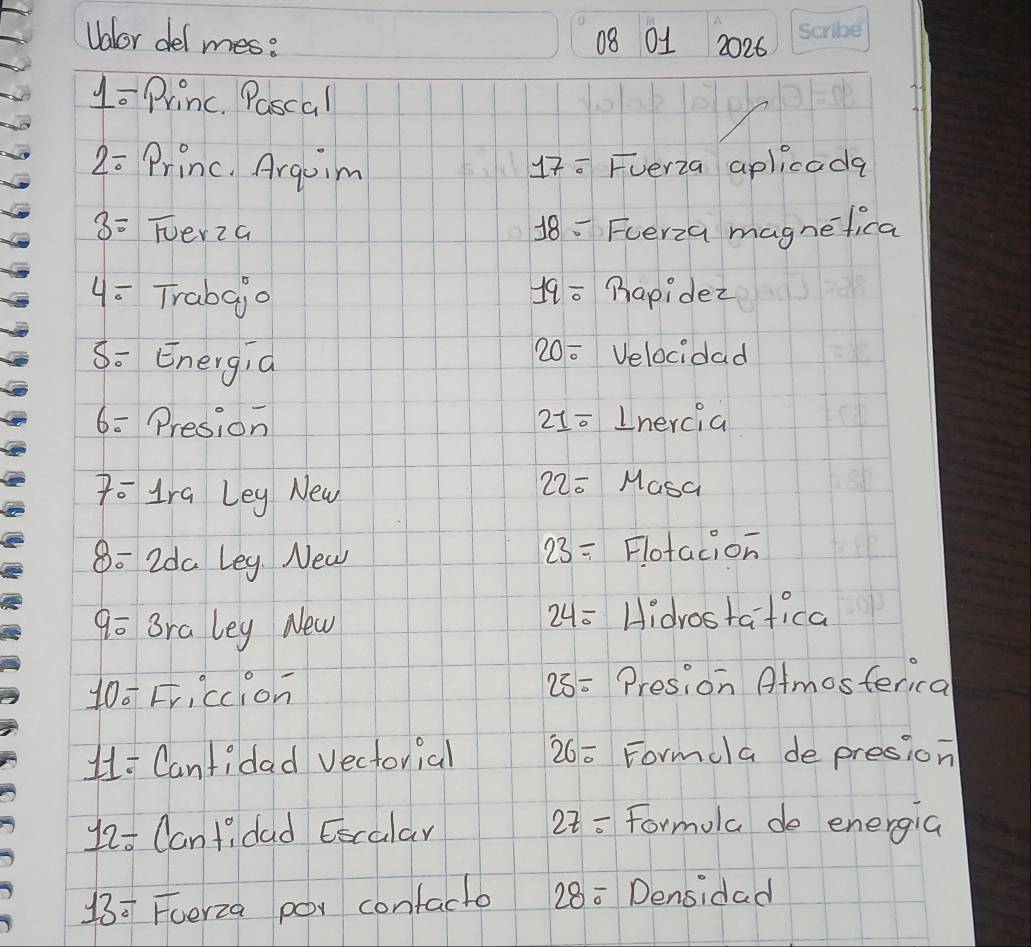 Valor del mes:
08 01 2026
Scribe
1.- Princ. Pascal
2.- Princ. Arquim
3.- Fuerza
4.- Trabajo
5.- Energía
6.- Presión
7.- 1ra Ley New
8.- 2da Ley. New
9.- 3ra ley New
10.- Fricción
11.- Cantidad vectorial
12.- Cantidad Escalar
13.- Fuerza por contacto
17.- Fuerza aplicada
18.- Fuerza magnética
19.- Rapidez
20.- Velocidad
21.- Inercia
22.- Masa
23.- Flotación
24.- Hidrostática
25.- Presión Atmosferica
26.- Formula de presión
27.- Formula de energía
28.- Densidad